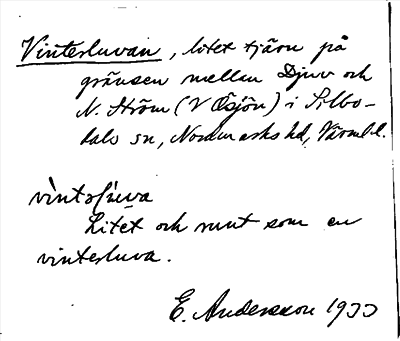 Vinterluvan, litet tjärn på
gränsen mellan Djuv och
N. Ström (V Ösjön) i Silbo-
dals sn, Nordmarks hd, Värml.
vìntəɼl̀uva
Litet och runt som en
vinterluva.
E. Andersson 1933